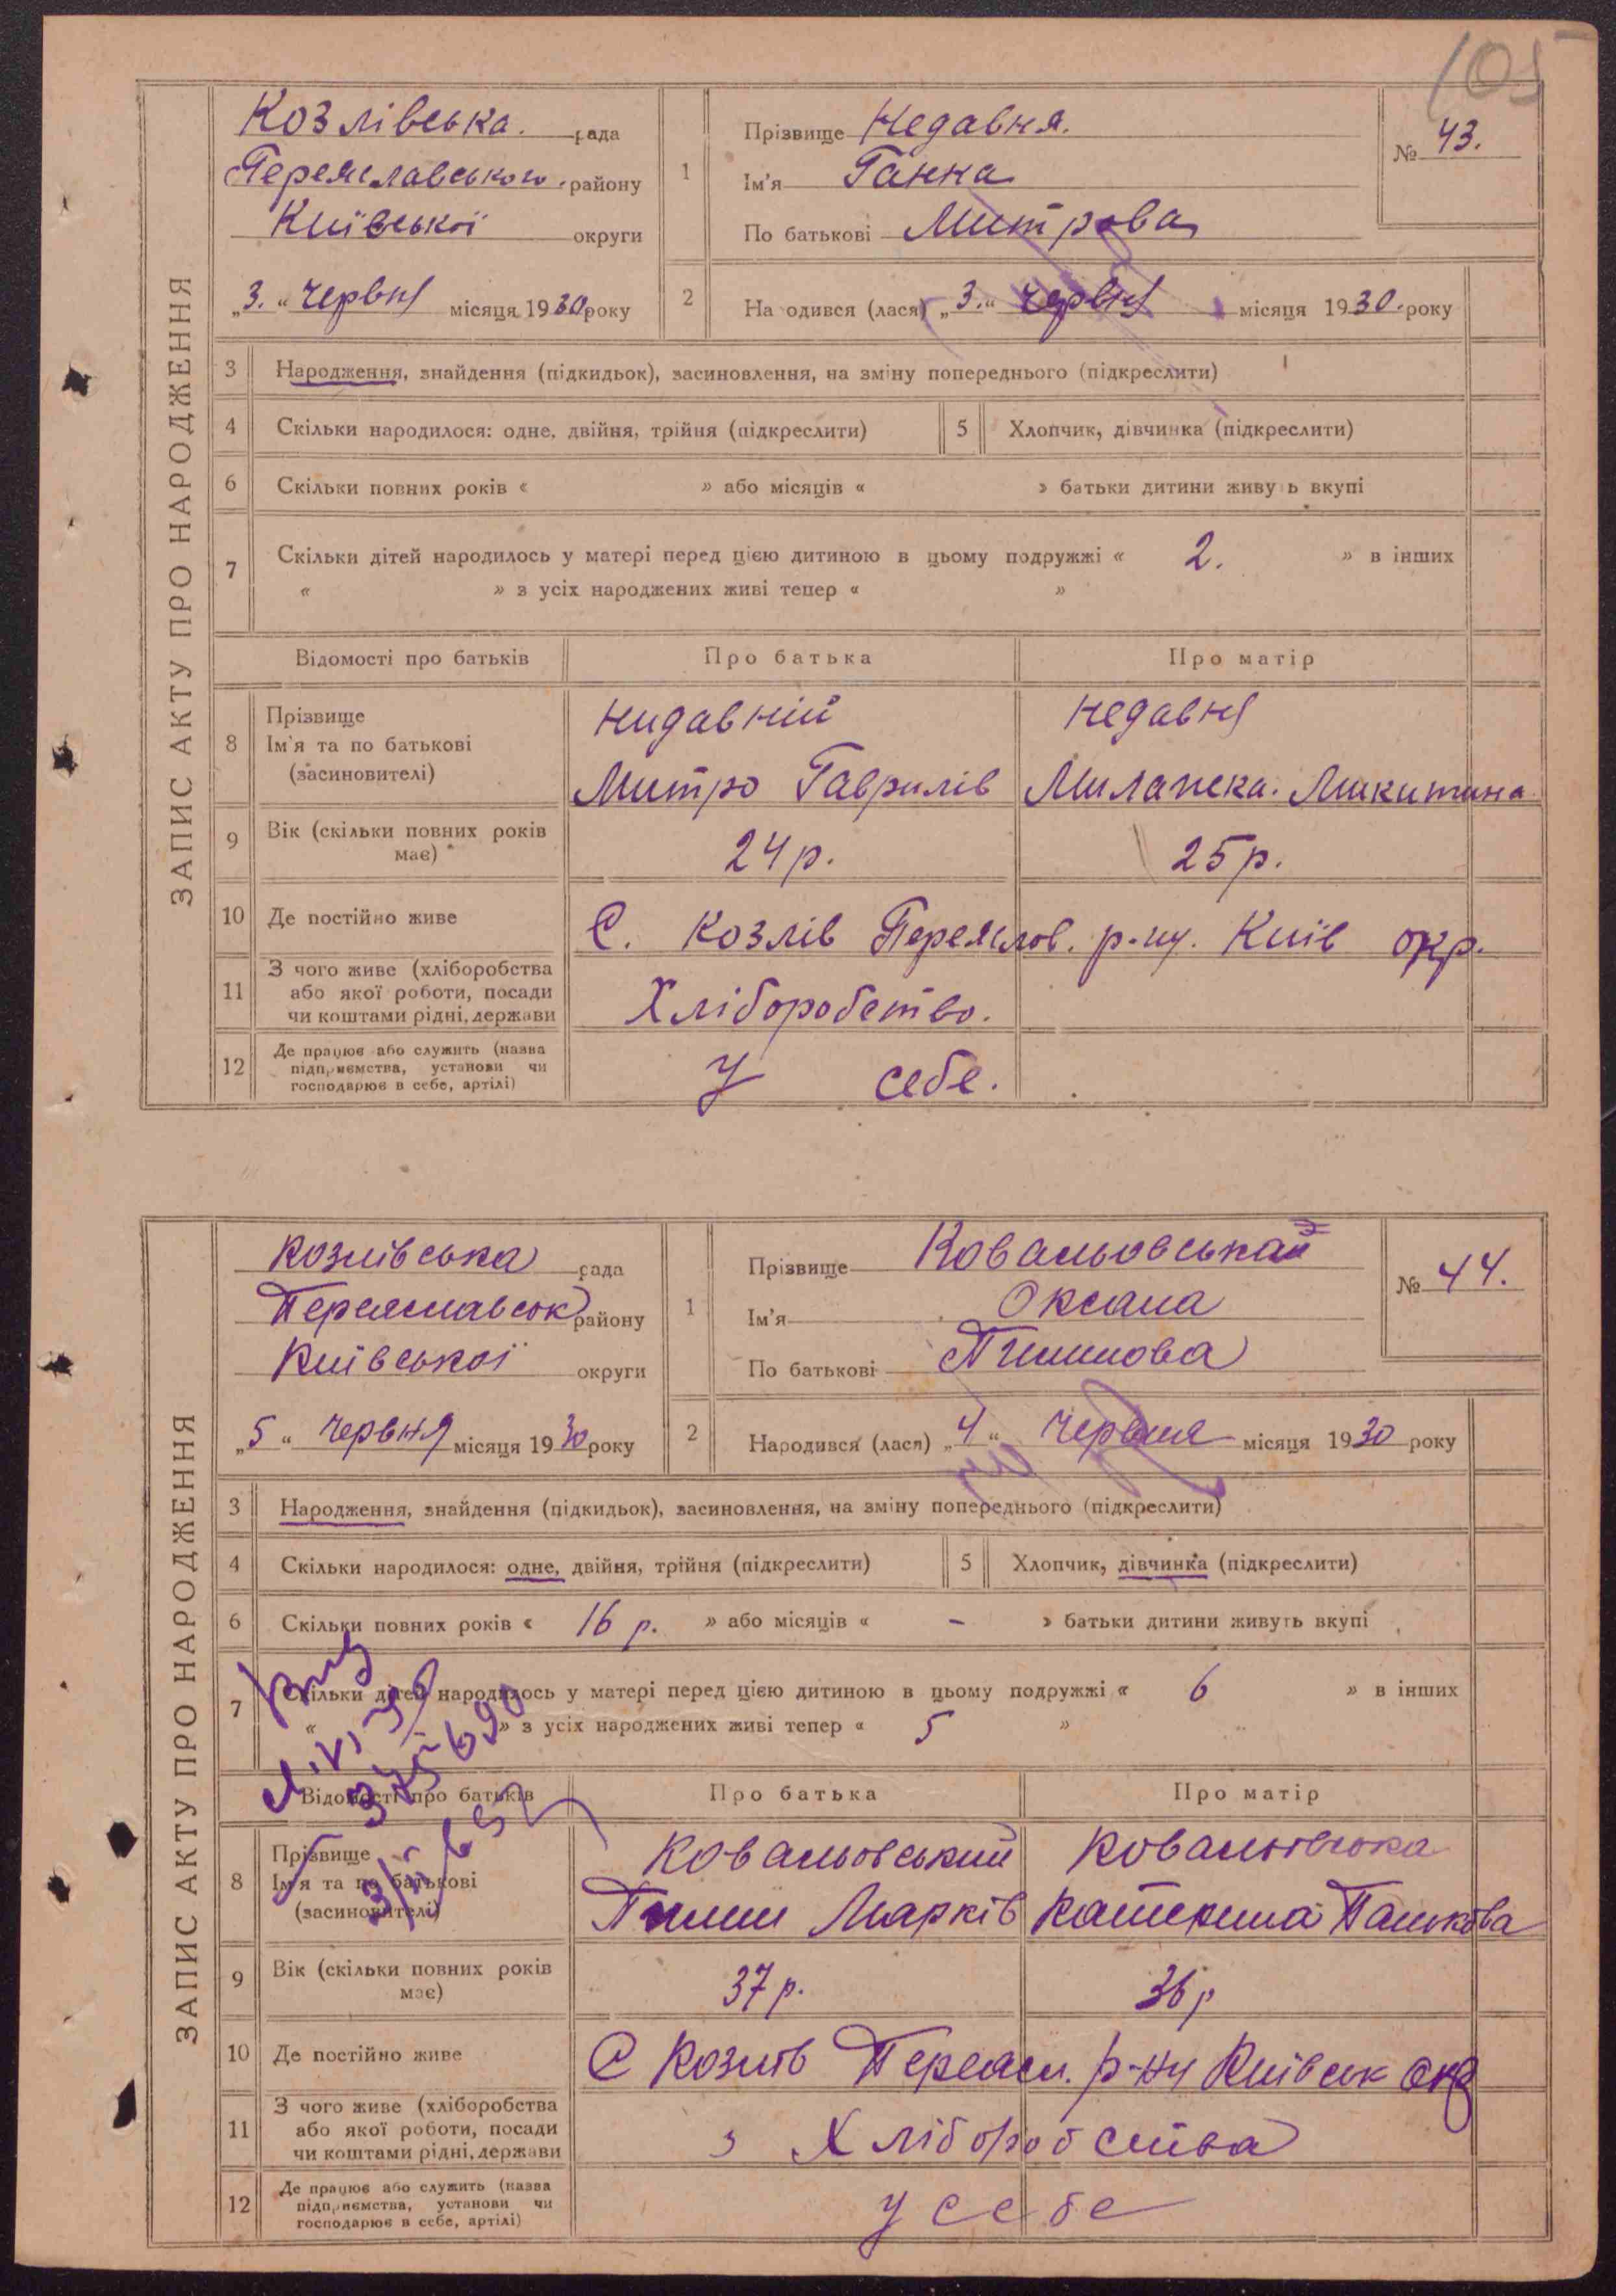 105
ЗАПИС АКТУ ПРО НАРОДЖЕННЯ
Козлівська. рада
Переяславського району
Київської округи
„3.“ червня місяця 1930 року
1 Прізвище Недавня.
Ім'я Ганна
По батькові Митрова
№ 43.
2 На одився (лася) „3.“ червня місяця 1930. року
3 Народження, знайдення (підкидьок), засиновлення, на зміну попереднього (підкреслити)
4 Скільки народилося: одне, двійня, трійня (підкреслити) 5 Хлопчик, дівчинка (підкреслити)
6 Скільки повних років « » або місяців « » батьки дитини живуть вкупі
7 Скільки дітей народилось у матері перед цією дитиною в цьому подружжі « 2. » в інших
« » з усіх народжених живі тепер « »
Відомості про батьків Про батька Про матір
8 Прізвище
Ім'я та по батькові
(засиновителі)
Нидавній
Митро Гаврилів
Недавня
Милашка. Микитина
9 Вік (скільки повних років має) 24 р. 25 р.
10 Де постійно живе С. Козлів Переяслов. р-ну. Київ окр.
11 З чого живе (хліборобства
або якої роботи, посади
чи коштами рідні, держави
Хліборобство.
12 Де працює або служить (назва
підприємства, установи чи
господарює в себе, артілі)
У себе.
ЗАПИС АКТУ ПРО НАРОДЖЕННЯ
Козлівська рада
Переяславськ району
Київської округи
„5“ червня місяця 1930 року
1 Прізвище Ковальовська
Ім'я Оксана
По батькові Пилипова
№ 44.
2 Народився (лася) „4“ червня місяця 1930 року
3 Народження, знайдення (підкидьок), засиновлення, на зміну попереднього (підкреслити)
4 Скільки народилося: одне, двійня, трійня (підкреслити) 5 Хлопчик, дівчинка (підкреслити)
6 Скільки повних років « 16 р. » або місяців « - » батьки дитини живуть вкупі
7 Скільки дітей народилось у матері перед цією дитиною в цьому подружжі « 6 » в інших
« » з усіх народжених живі тепер « 5 »
Відомості про батьків Про батька Про матір
8 Прізвище
Ім'я та по батькові
(засиновителі)
Ковальовський
Пилип Марків
Ковальовська
Катерина Панькова
9 Вік (скільки повних років має) 37 р. 36 р
10 Де постійно живе С Козлів Переясл. р-ну Київськ окр
11 З чого живе (хліборобства
або якої роботи, посади
чи коштами рідні, держави
з Хліборобства
12 Де працює або служить (назва
підприємства, установи чи
господарює в себе, артілі)
у себе